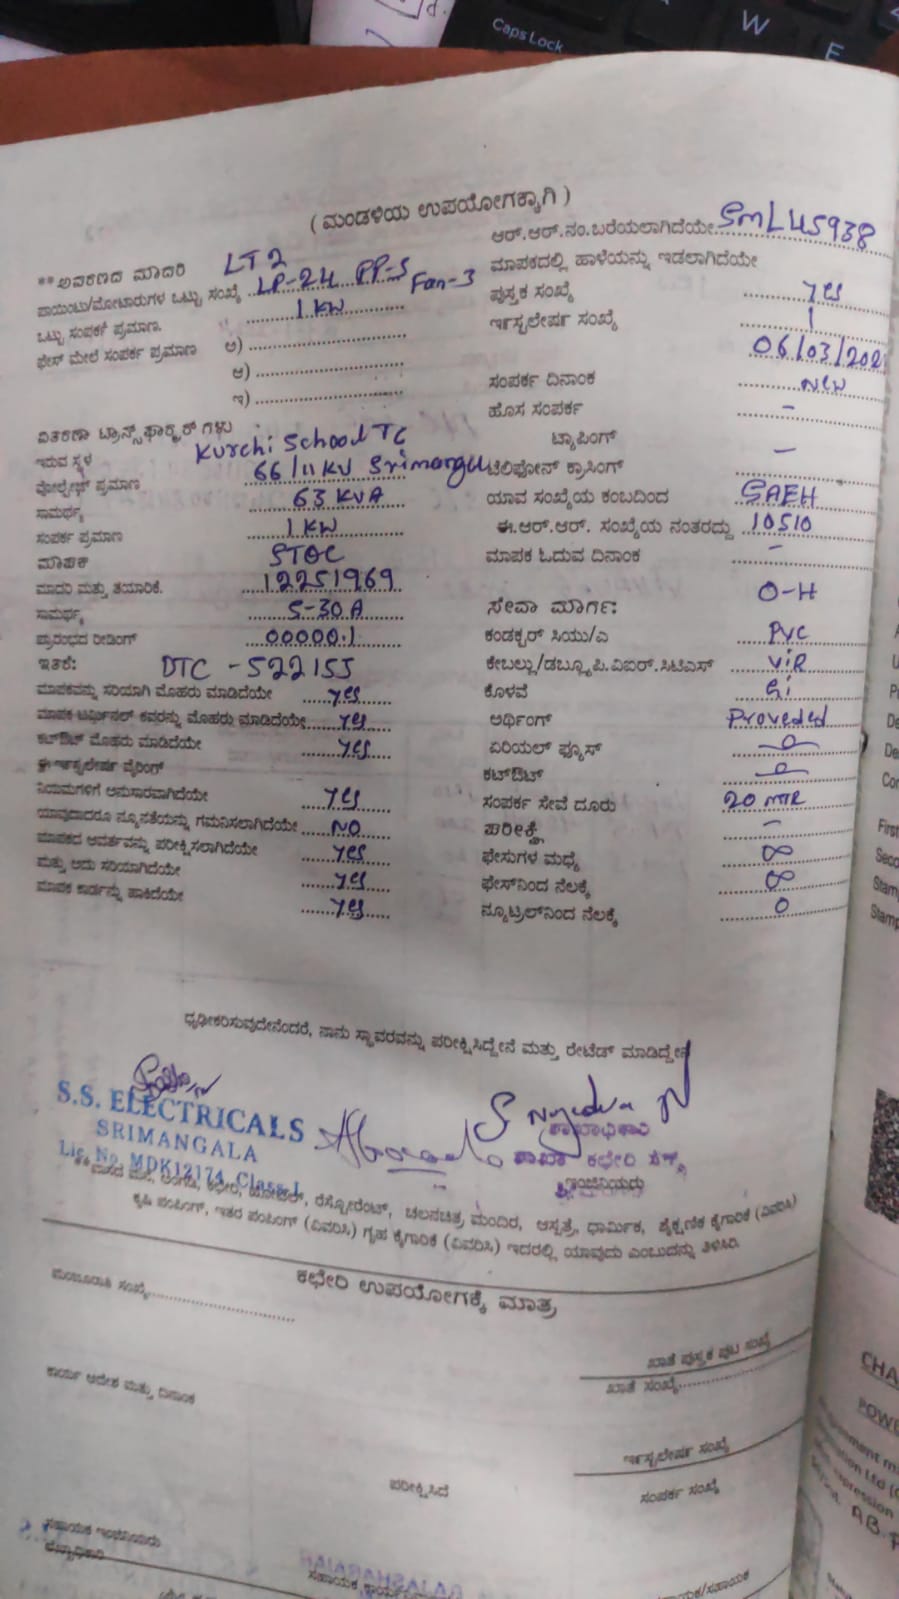 Caps Lock
W
E
( ಮಂಡಳಿಯ ಉಪಯೋಗಕ್ಕಾಗಿ )
**ಅವಕರಣದ ಮಾದರಿ LT2
ಪಾಯಿಂಟು/ಮೋಟಾರುಗಳ ಒಟ್ಟು ಸಂಖ್ಯೆ LP-24 PP-5 Fan-3
ಒಟ್ಟು ಸಂಪರ್ಕ ಪ್ರಮಾಣ. 1 KW
ಫೇಸ್ ಮೇಲೆ ಸಂಪರ್ಕ ಪ್ರಮಾಣ ಅ)
ಆ)
ಇ)
ವಿತರಣಾ ಟ್ರಾನ್ಸ್‌ಫಾರ್ಮರ್ ಗಳು
ಇರುವ ಸ್ಥಳ Kurchi School TC
ವೋಲ್ಟೇಜ್ ಪ್ರಮಾಣ 66/11 KV Srimangala
ಸಾಮರ್ಥ್ಯ 63 KVA
ಸಂಪರ್ಕ ಪ್ರಮಾಣ 1 KW
ಮಾಪಕ
ಮಾದರಿ ಮತ್ತು ತಯಾರಿಕೆ. 12251969
ಸಾಮರ್ಥ್ಯ 5-30A
ಪ್ರಾರಂಭದ ರೀಡಿಂಗ್ 00000.1
ಇತರೆ: DTC - 522155
ಮಾಪಕವನ್ನು ಸರಿಯಾಗಿ ಮೊಹರು ಮಾಡಿದೆಯೇ yes
ಮಾಪಕ ಟರ್ಮಿನಲ್ ಕವರನ್ನು ಮೊಹರು ಮಾಡಿದೆಯೇ yes
ಕಟ್‌ಔಟ್ ಮೊಹರು ಮಾಡಿದೆಯೇ yes
ಈ ಇನ್‌ಸ್ಟಲೇಷನ್ ವೈರಿಂಗ್
ನಿಯಮಗಳಿಗೆ ಅನುಸಾರವಾಗಿದೆಯೇ yes
ಯಾವುದಾದರೂ ನ್ಯೂನತೆಯನ್ನು ಗಮನಿಸಲಾಗಿದೆಯೇ NO
ಮಾಪಕದ ಆವರ್ತವನ್ನು ಪರೀಕ್ಷಿಸಲಾಗಿದೆಯೇ yes
ಮತ್ತು ಅದು ಸರಿಯಾಗಿದೆಯೇ yes
ಮಾಪಕ ಕಾರ್ಡನ್ನು ಹಾಕಿದೆಯೇ yes
ಆರ್.ಆರ್.ನಂ.ಬರೆಯಲಾಗಿದೆಯೇ SmL45938
ಮಾಪಕದಲ್ಲಿ ಹಾಳೆಯನ್ನು ಇಡಲಾಗಿದೆಯೇ
ಪುಸ್ತಕ ಸಂಖ್ಯೆ yes
ಇನ್‌ಸ್ಟಲೇಷನ್ ಸಂಖ್ಯೆ 1
06/03/202
ಸಂಪರ್ಕ ದಿನಾಂಕ New
ಹೊಸ ಸಂಪರ್ಕ -
ಟ್ಯಾಪಿಂಗ್
ಟೆಲಿಫೋನ್ ಕ್ರಾಸಿಂಗ್ -
ಯಾವ ಸಂಖ್ಯೆಯ ಕಂಬದಿಂದ SAEH
ಈ.ಆರ್.ಆರ್. ಸಂಖ್ಯೆಯ ನಂತರದ್ದು 10510
ಮಾಪಕ ಓದುವ ದಿನಾಂಕ -
ಸೇವಾ ಮಾರ್ಗ: O-H
ಕಂಡಕ್ಟರ್ ಸಿಯು/ಎ PVC
ಕೇಬಲ್ಲು/ಡಬ್ಲ್ಯೂ.ಪಿ.ವಿಐಆರ್.ಸಿಟಿಎಸ್ ViR
ಕೊಳವೆ Gi
ಅರ್ಥಿಂಗ್ Proveded
ಏರಿಯಲ್ ಫ್ಯೂಸ್
ಕಟ್‌ಔಟ್
ಸಂಪರ್ಕ ಸೇವೆ ದೂರು 20 MTR
ಪರೀಕ್ಷೆ -
ಫೇಸುಗಳ ಮಧ್ಯೆ ∞
ಫೇಸ್‌ನಿಂದ ನೆಲಕ್ಕೆ ∞
ನ್ಯೂಟ್ರಲ್‌ನಿಂದ ನೆಲಕ್ಕೆ 0
ಧೃಢೀಕರಿಸುವುದೇನೆಂದರೆ, ನಾನು ಸ್ಥಾವರವನ್ನು ಪರೀಕ್ಷಿಸಿದ್ದೇನೆ ಮತ್ತು ರೇಟೆಡ್ ಮಾಡಿದ್ದೇನೆ
S.S. ELECTRICALS
SRIMANGALA
Lic. No. MDK12174, Class-1
ಶಾಖಾಧಿಕಾರಿ
ಶಾಖಾ ಕಛೇರಿ
ಇಂಜಿನಿಯರು
ಕಛೇರಿ, ಹೋಟೆಲ್, ರೆಸ್ಟೋರೆಂಟ್, ಚಲನಚಿತ್ರ ಮಂದಿರ, ಆಸ್ಪತ್ರೆ, ಧಾರ್ಮಿಕ, ಶೈಕ್ಷಣಿಕ ಕೈಗಾರಿಕೆ (ವಿವರಿಸಿ)
ಕೃಷಿ ಪಂಪಿಂಗ್, ಇತರ ಪಂಪಿಂಗ್ (ವಿವರಿಸಿ) ಗೃಹ ಕೈಗಾರಿಕೆ (ವಿವರಿಸಿ) ಇದರಲ್ಲಿ ಯಾವುದು ಎಂಬುದನ್ನು ತಿಳಿಸಿರಿ.
ಕಛೇರಿ ಉಪಯೋಗಕ್ಕೆ ಮಾತ್ರ
ಮಂಜೂರಾತಿ ಸಂಖ್ಯೆ
ಖಾತೆ ಪುಸ್ತಕ ಪುಟ ಸಂಖ್ಯೆ
ಖಾತೆ ಸಂಖ್ಯೆ
ಕಾರ್ಯ ಆದೇಶ ಮತ್ತು ದಿನಾಂಕ
ಇನ್‌ಸ್ಟಲೇಷನ್ ಸಂಖ್ಯೆ
ಪರೀಕ್ಷಿಸಿದೆ
ಸಂಪರ್ಕ ಸಂಖ್ಯೆ
ಸಹಾಯಕ ಇಂಜಿನಿಯರು
CHA
POWE